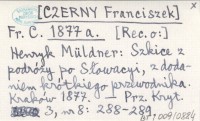 [CZERNY Franciszek]
Fr. C. 1877 a. [Rec. o:]
Henryk Müldner: Szkice z
podróży po Słowacyi, z doda-
niem krótkiego przewodnika.
Kraków 1877. | Prz. Kryt.
3, nr 8: 288-289